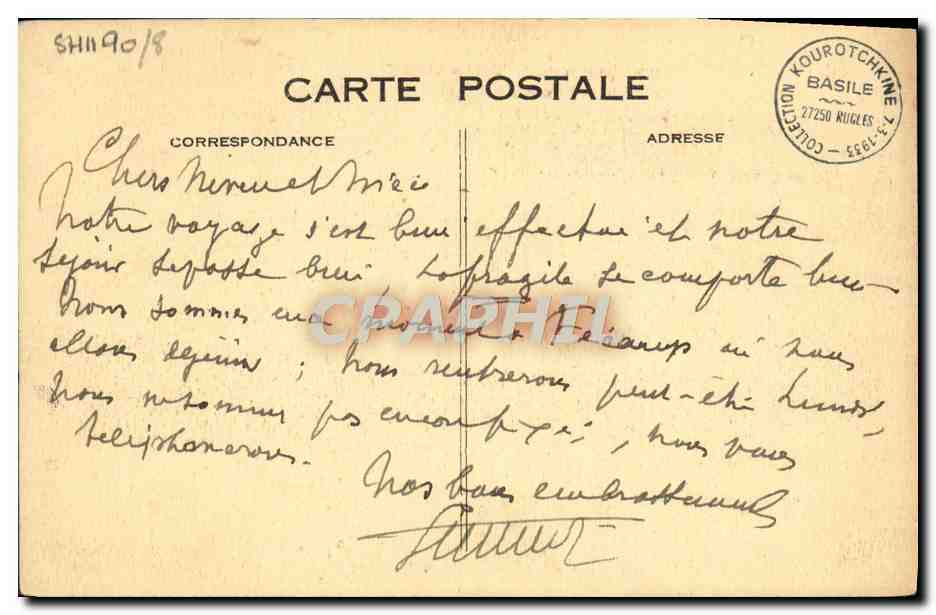 SH1190/8
CARTE POSTALE
CORRESPONDANCE
ADRESSE
COLLECTION KOUROTCHKINE 7-3-1933
BASILE
27250 RUGLES
Chers Neveu et Nièce
Notre voyage s'est bien effectué et notre
séjour se passe bien la fragile se comporte bien
Nous sommes en ce moment à Fécamp où nous
allons déjeuner ; nous rentrerons peut-être Lundi,
nous ne sommes pas encore fixés, nous vous
téléphonerons.
Nos bons embrassements
CPAPHIL